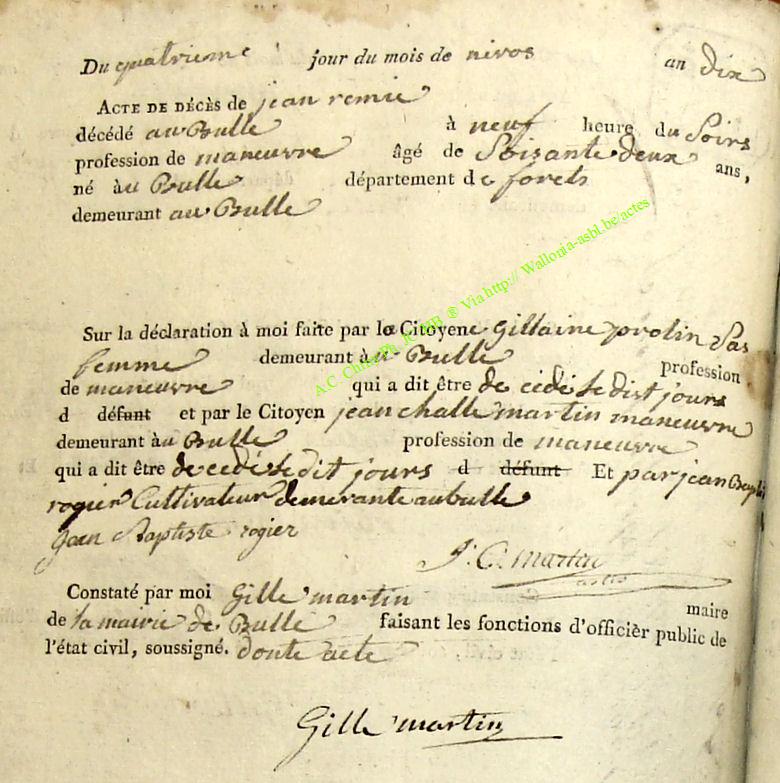 Du quatrieme jour du mois de nivos an dix
ACTE DE DÉCÈS de jean remie
décédé au Bulle à neuf heure du Soirs
profession de maneuvre âgé de Soisante deux ans,
né àu Bulle département de forets
demeurant au Bulle
Sur la déclaration à moi faite par la Citoyene Gillaine prolin Sas
femme demeurant àu Bulle profession
de maneuvre qui a dit être de cédé le dist jours
d défunt et par le Citoyen jean challe martin maneuvre
demeurant àu Bulle profession de maneuvre
qui a dit être de cedé le dit jours d défunt Et par jean Baptis
rogier Cultivateur demerante au bulle
jean Baptiste rogier
J. C. martin
Constaté par moi Gille martin maire
de la mairie de Bulle faisant les fonctions d'officièr public de
l'état civil, soussigné. donte acte
Gille martin
A.C. Chiny Ph. ® Via http:// Wallonia-asbl.be/actes